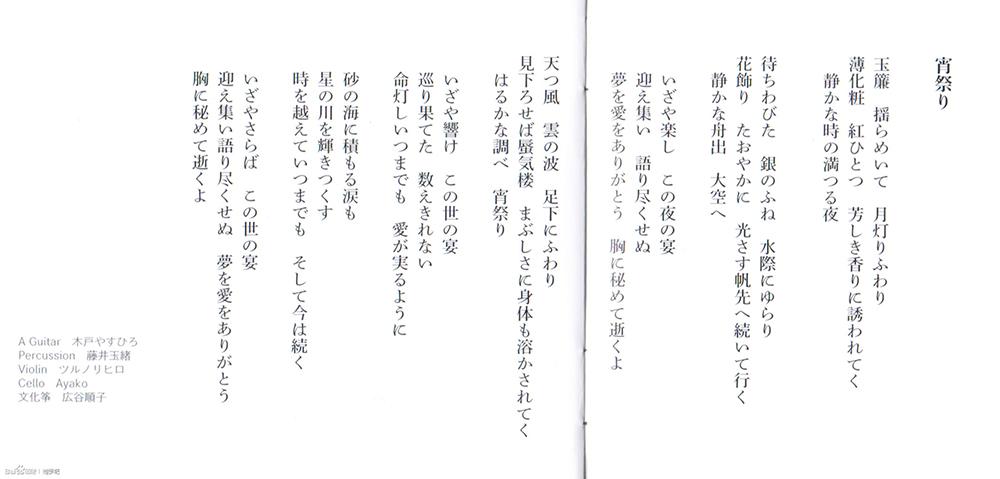 宵祭り
玉簾　揺らめいて　月灯りふわり
薄化粧　紅ひとつ　芳しき香りに誘われてく
静かな時の満つる夜
待ちわびた　銀のふね　水際にゆらり
花飾り　たおやかに　光さす帆先へ続いて行く
静かな舟出　大空へ
いざや楽し　この夜の宴
迎え集い　語り尽くせぬ
夢を愛をありがとう　胸に秘めて逝くよ
天つ風　雲の波　足下にふわり
見下ろせば蜃気楼　まぶしさに身体も溶かされてく
はるかな調べ　宵祭り
いざや響け　この世の宴
巡り果てた　数えきれない
命灯しいつまでも　愛が実るように
砂の海に積もる涙も
星の川を輝きつくす
時を越えていつまでも　そして今は続く
いざやさらば　この世の宴
迎え集い語り尽くせぬ　夢を愛をありがとう
胸に秘めて逝くよ
A Guitar　木戸やすひろ
Percussion　藤井玉緒
Violin　ツルノリヒロ
Cello　Ayako
文化筝　広谷順子